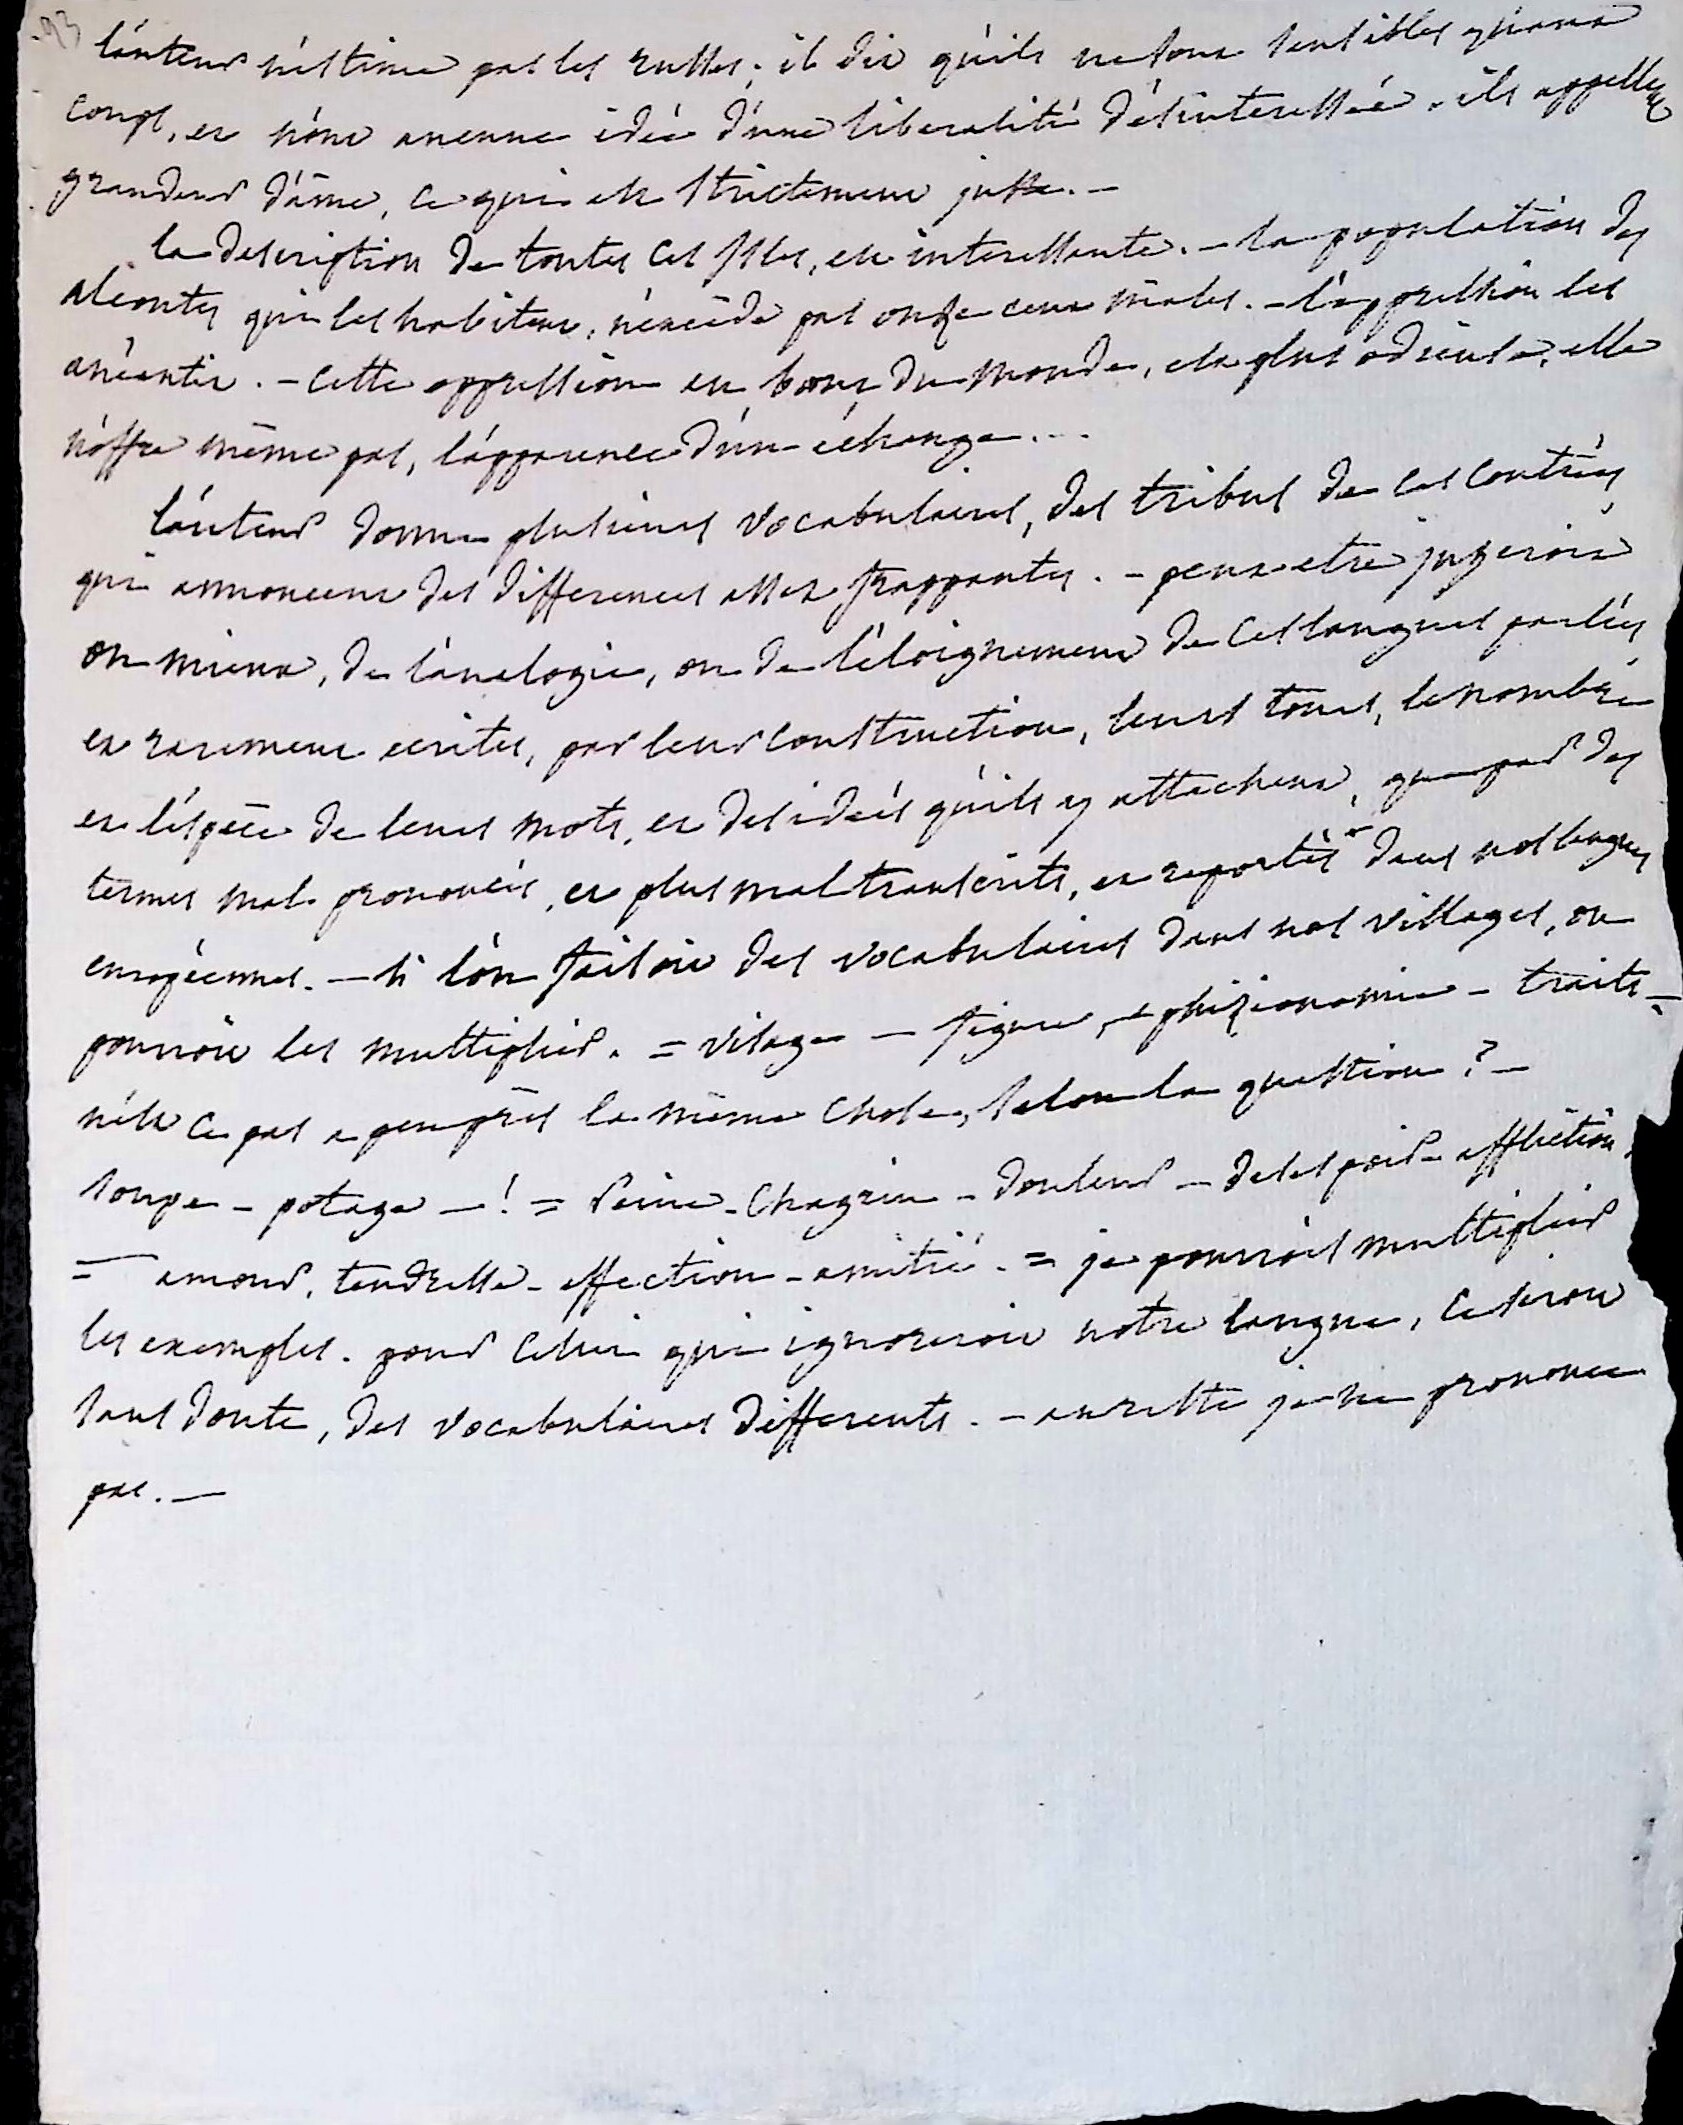 93
l'auteur n'estime pas les russes; il dit qu'ils ne sont sensibles qu'aux
coups, et n'ont aucune idée d'une liberalité désinteressée. ils appellent
grandeur d'âme, ce qui est strictement juste. —
la description de toutes ces isles, est interessante. — la population des
aleoutes qui les habitent, n'excède pas onze cent mâles. — l'oppression les
anéantit. — cette oppression au bout du monde, est plus odieuse, elle
n'offre même pas, l'apparence d'un échange. ..
l'auteur donne plusieurs vocabulaires, des tribus de ces contrées
qui annoncent des differences assez frappantes. — peut etre jugeroit
on mieux, de l'analogie, ou de l'éloignement de ces langues parlées
et rarement ecrites, par leur construction, leurs tours, le nombre
et l'espèce de leurs mots, et des idées qu'ils y attachent, que par des
termes mal prononcés, et plus mal transcrits, et reportés dans nos langues
européennes. — si l'on faisoit des vocabulaires dans nos villages, on
pourroit les multiplier. = visage — figure — phizionomie — traits =
n'est ce pas a peu près la même chose, selon la question? —
soupe — potage — ! = Peine — Chagrin — douleur — desespoir — affliction,
= amour, tendresse — affection — amitié. = je pourrois multiplier
les exemples. pour celui qui ignoreroit notre langue, ce seroit
sans doute, des vocabulaires differents. — au reste je ne prononce
pas. —